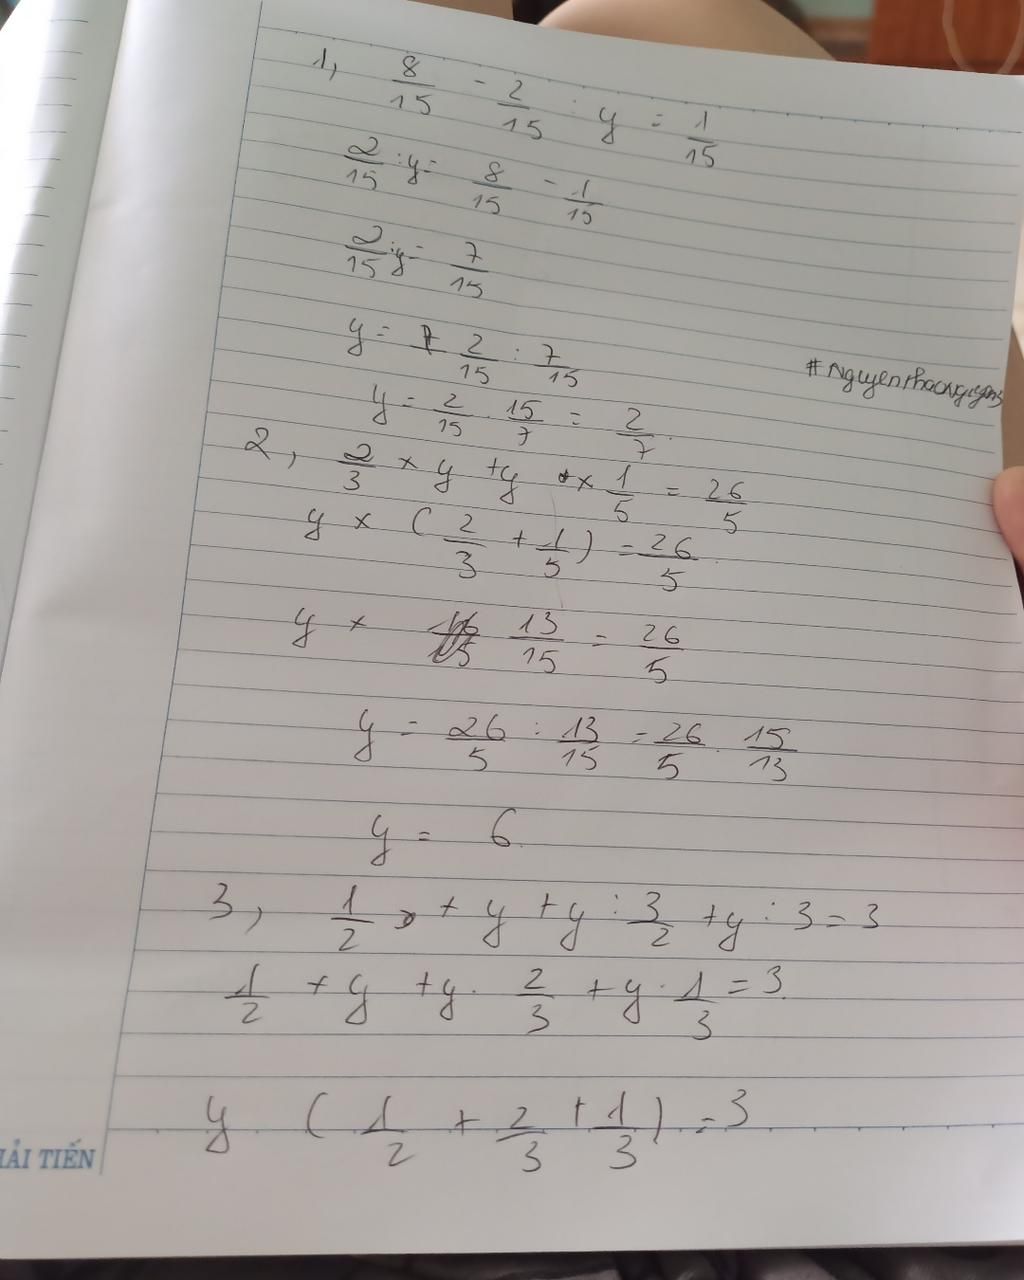 1, 8/15 - 2/15 : y = 1/15
2/15 : y = 8/15 - 1/15
2/15 : y = 7/15
y = 2/15 : 7/15
y = 2/15 . 15/7 = 2/7.
2, 2/3 × y + y × 1/5 = 26/5
y × ( 2/3 + 1/5 ) = 26/5.
y × 13/15 = 26/5
y = 26/5 : 13/15 = 26/5 . 15/13
y = 6
3, 1/2 + y + y : 3/2 + y : 3 = 3
1/2 + y + y . 2/3 + y . 1/3 = 3.
y ( 1/2 + 2/3 + 1/3 ) = 3
ẢI TIẾN